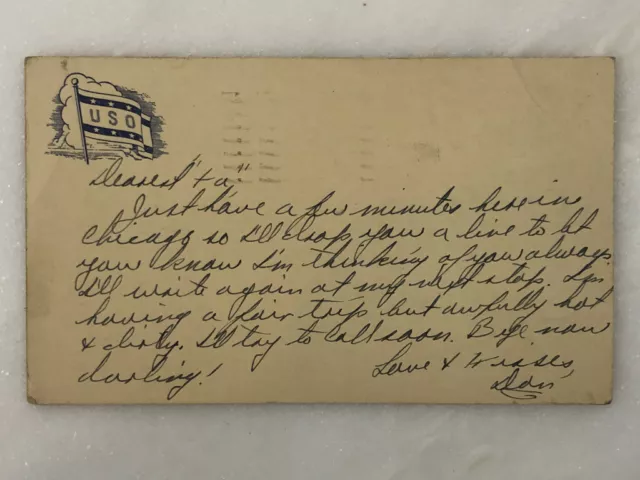 USO
Dearest "+a"
Just have a few minutes here in
Chicago so I'll drop you a line to let
you know I'm thinking of you always.
I'll write again at my next stop. I'm
having a fair trip but awfully hot
& dirty. I'll try to call soon. Bye now
darling!
Love & Kisses,
Don